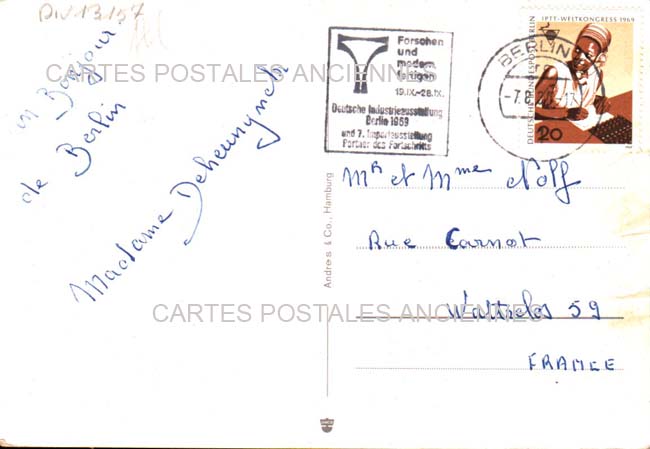 DIV-13.157
un Bonjour
de Berlin
Madame Deheunynck
CARTES POSTALES ANCIENNES
Forschen
und
modern
fertigen
19.IX.-28.IX.
Deutsche Industrieausstellung
Berlin 1969
und 7. Importausstellung
Partner des Fortschritts
IPTT-WELTKONGRESS 1969
DEUTSCHE BUNDESPOST BERLIN
20
BERLIN
Mr et Mme Nolf
Rue Carnot
Wattrelos 59
FRANCE
Andres & Co., Hamburg
CARTES POSTALES ANCIENNES